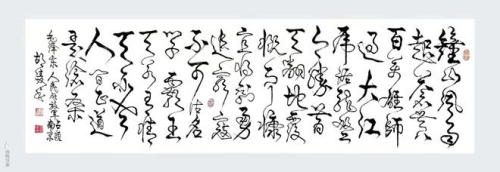 鐘山風雨
起蒼黃
百萬雄師
過大江
虎踞龍盤
今勝昔
天翻地覆
慨而慷
宜將剩勇
追窮寇
不可沽名
學霸王
天若有情
天亦老
人間正道
是滄桑
毛澤東 人民解放軍占領南京